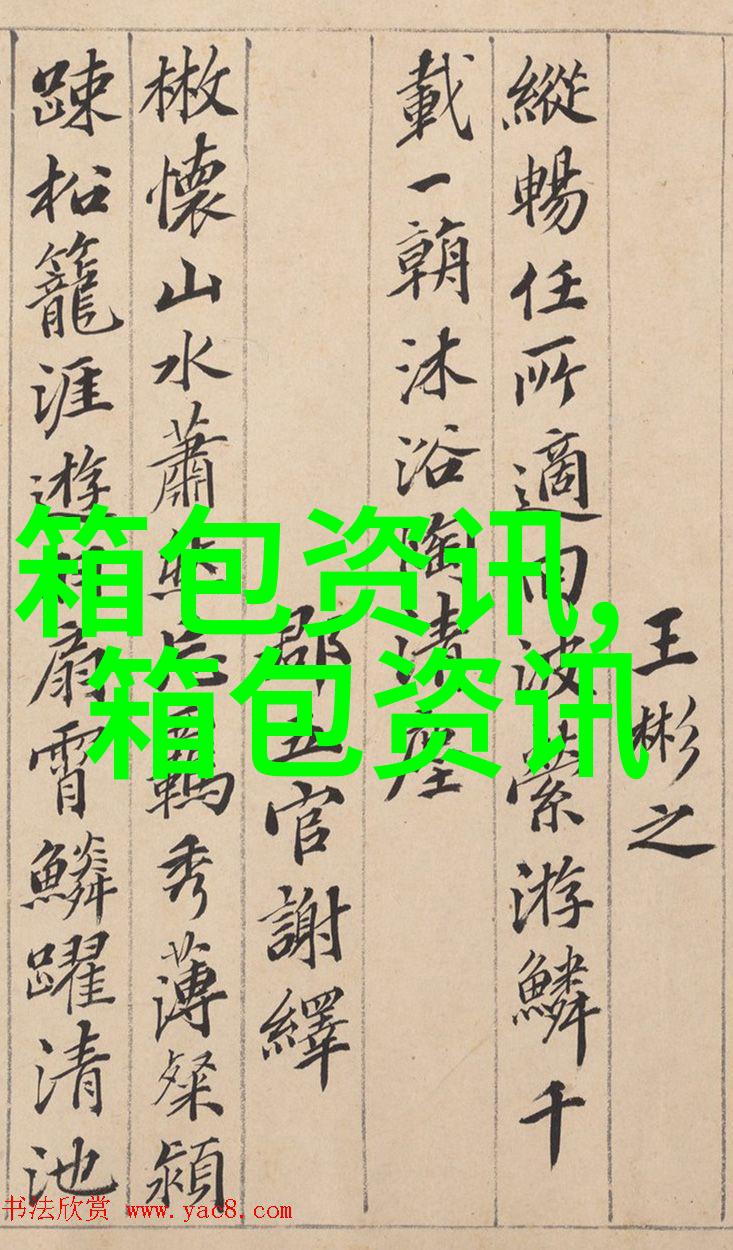 王彬之
縱暢任所適回波縈游鱗千
載一朝沐浴陶清塵
郡五官謝繹
散懷山水蕭然忘羈秀薄粲穎
踈松籠涯遊羽扇霄鱗躍清池
箱包资讯,
箱包资讯
书法欣赏 www.yac8.com